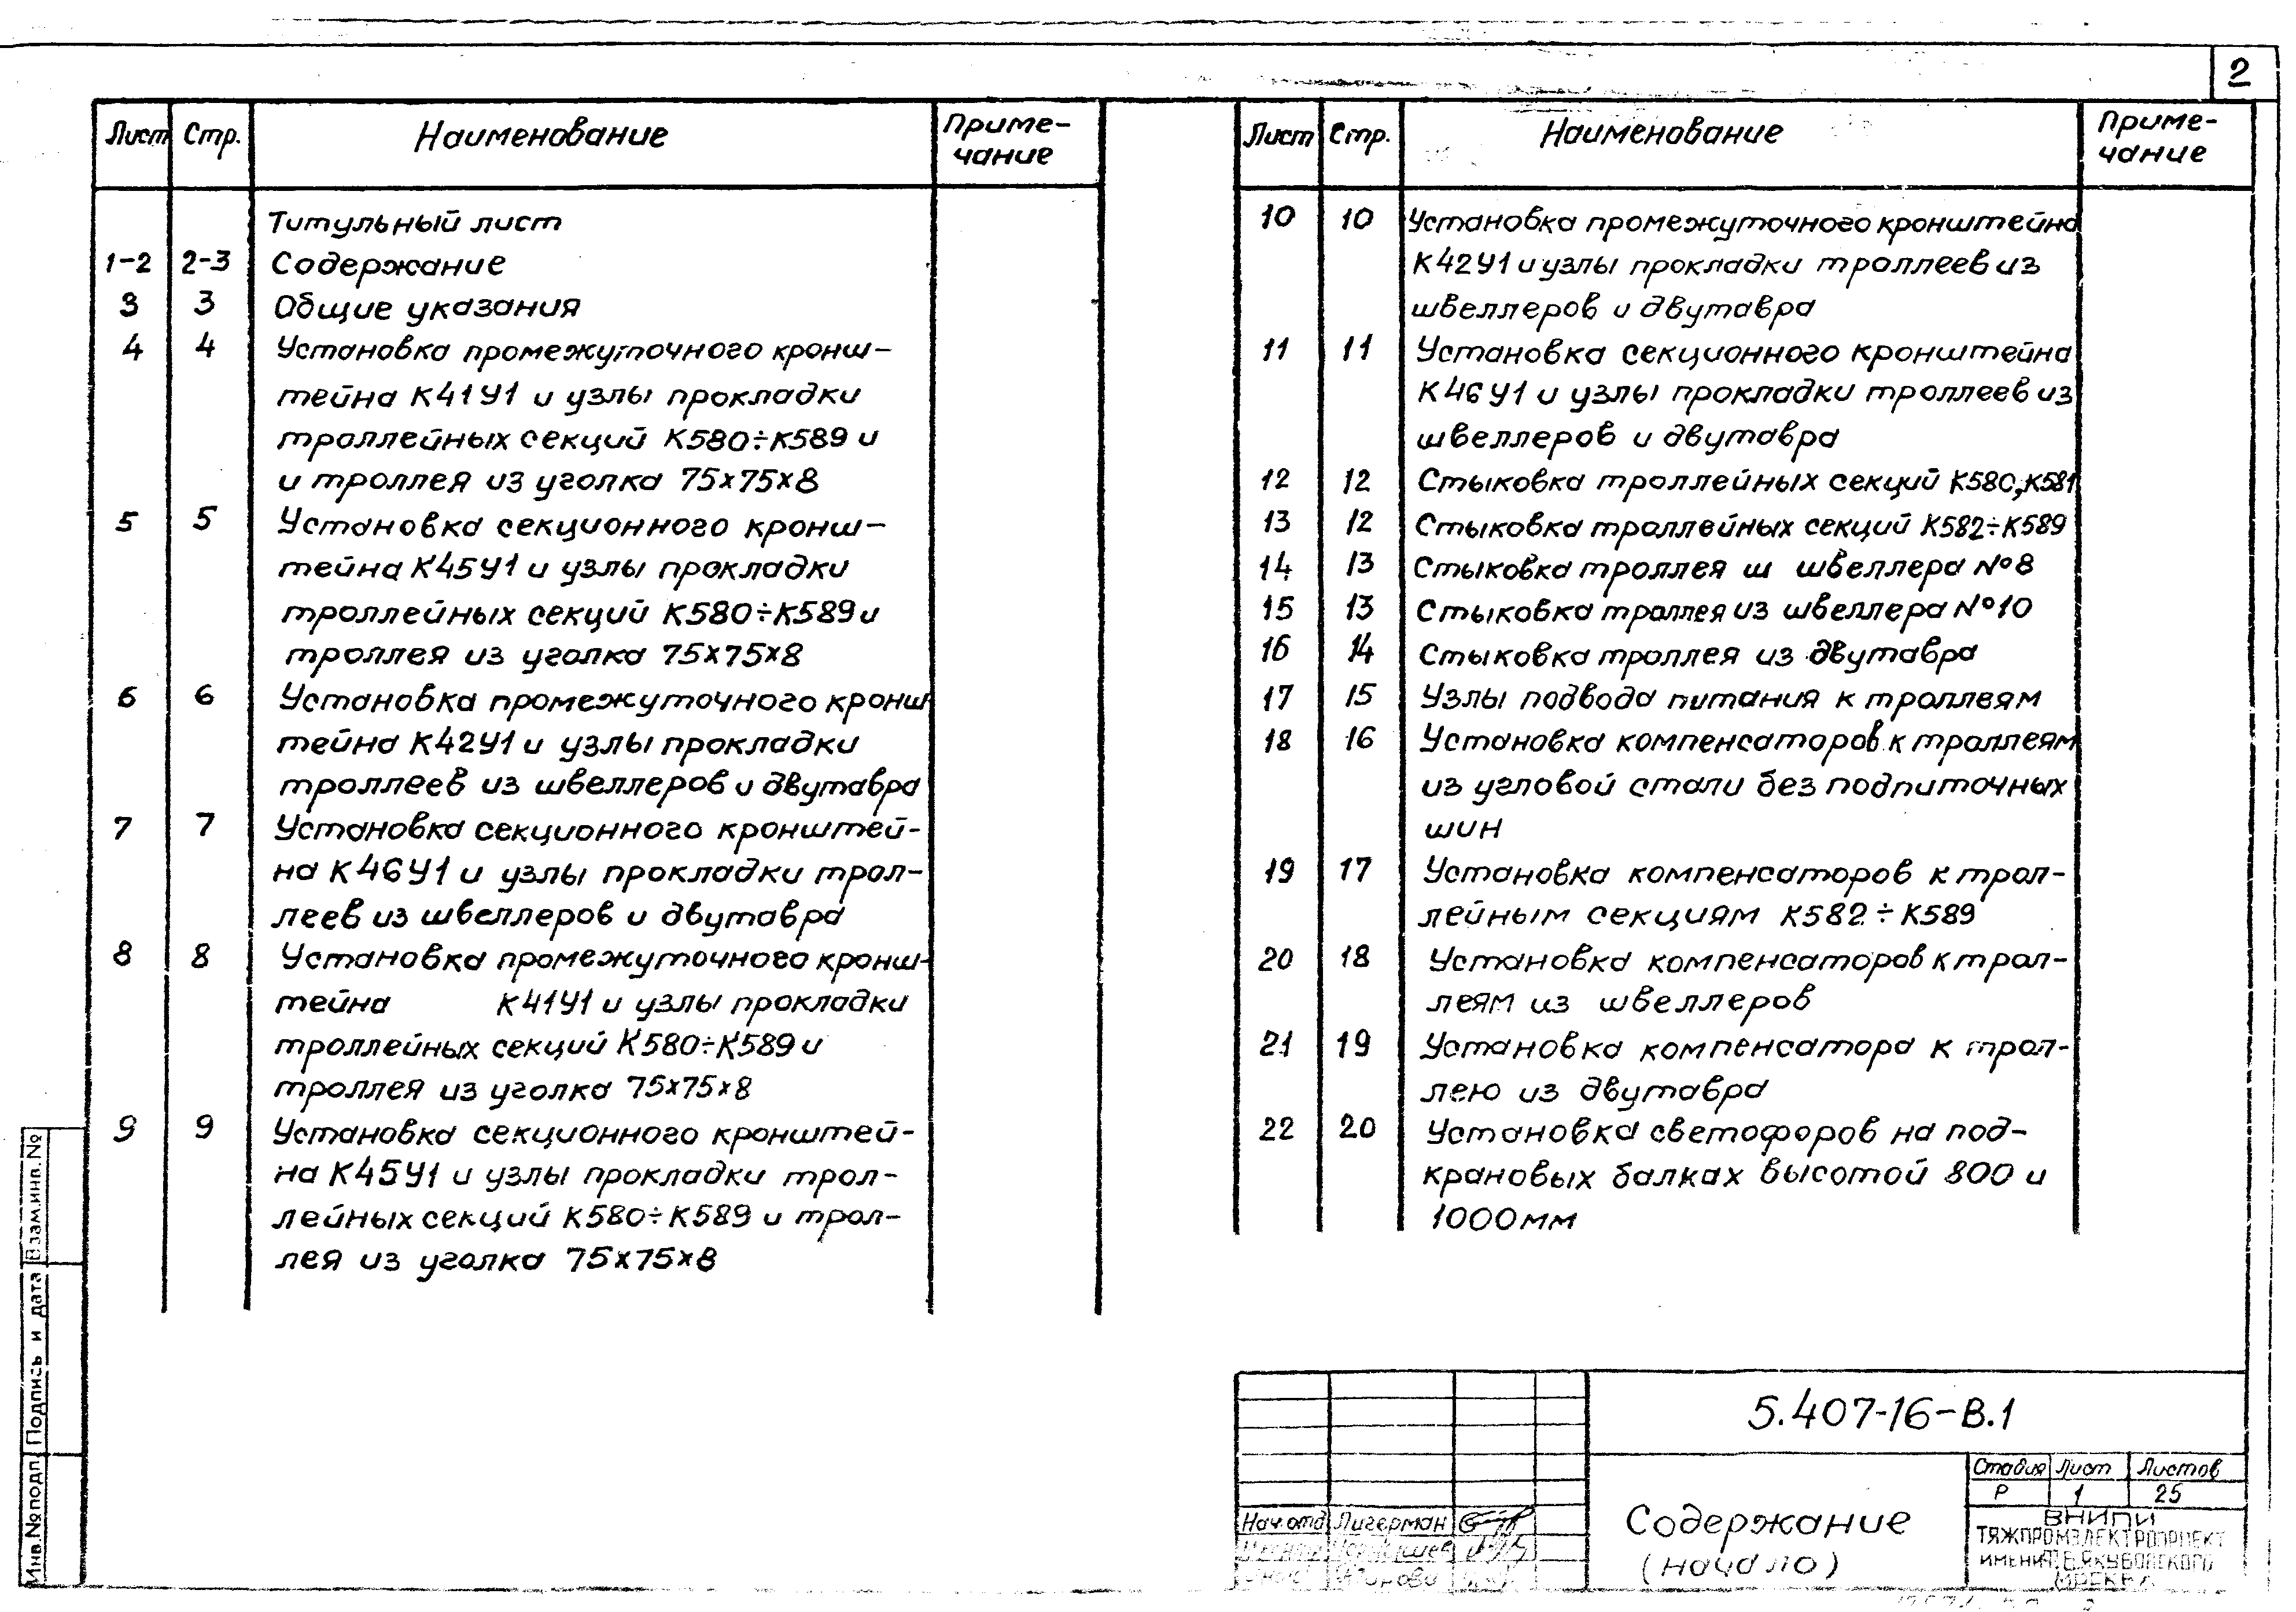 2
Лист Стр. Наименование Приме-
чание
Титульный лист
1-2 2-3 Содержание
3 3 Общие указания
4 4 Установка промежуточного кронш-
тейна К41У1 и узлы прокладки
троллейных секций К580÷К589 и
и троллея из уголка 75х75х8
5 5 Установка секционного кронш-
тейна К45У1 и узлы прокладки
троллейных секций К580÷К589 и
троллея из уголка 75х75х8
6 6 Установка промежуточного кронш
тейна К42У1 и узлы прокладки
троллеев из швеллеров и двутавра
7 7 Установка секционного кронштей-
на К46У1 и узлы прокладки трол-
леев из швеллеров и двутавра
8 8 Установка промежуточного кронш-
тейна К41У1 и узлы прокладки
троллейных секций К580÷К589 и
троллея из уголка 75х75х8
9 9 Установка секционного кронштей-
на К45У1 и узлы прокладки трол-
лейных секций К580÷К589 и трол-
лея из уголка 75х75х8
Лист Стр. Наименование Приме-
чание
10 10 Установка промежуточного кронштейна
К42У1 и узлы прокладки троллеев из
швеллеров и двутавра
11 11 Установка секционного кронштейна
К46У1 и узлы прокладки троллеев из
швеллеров и двутавра
12 12 Стыковка троллейных секций К580,К581
13 12 Стыковка троллейных секций К582÷К589
14 13 Стыковка троллея ш швеллера №8
15 13 Стыковка троллея из швеллера №10
16 14 Стыковка троллея из двутавра
17 15 Узлы подвода питания к троллеям
18 16 Установка компенсаторов к троллеям
из угловой стали без подпиточных
шин
19 17 Установка компенсаторов к трол-
лейным секциям К582÷К589
20 18 Установка компенсаторов к трол-
леям из швеллеров
21 19 Установка компенсатора к трол-
лею из двутавра
22 20 Установка светофоров на под-
крановых балках высотой 800 и
1000мм
Инв.№подл. Подпись и дата Взам.инв.№
5.407-16-В.1
Нач.отд Лигерман
Содержание
(начало)
Стадия Лист Листов
Р 1 25
ВНИПИ
ТЯЖПРОМЭЛЕКТРОПРОЕКТ
ИМЕНИ Ф.Б.ЯКУБОВСКОГО
МОСКВА